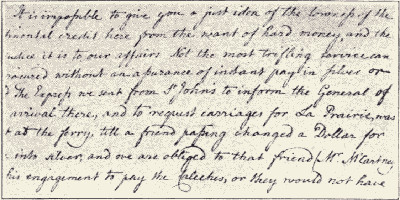 It is impossible to give you a just idea of the lowness of the
tinental credit here from the want of hard money, and the
udice it is to our affairs. Not the most trifling service can
rocured without an assurance of instant pay in silver or
The Express we sent from St Johns to inform the General of
arrival there, and to request carriages for La Prairie, was
at the ferry, till a friend passing changed a Dollar for
into silver, and we are obliged to that friend (Mr McCartney
his engagement to pay the caleches, or they would not have